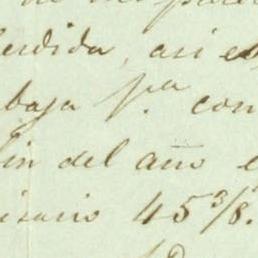 erdida, asi es
baja p.a con
in del año e
isario 45 3/8.